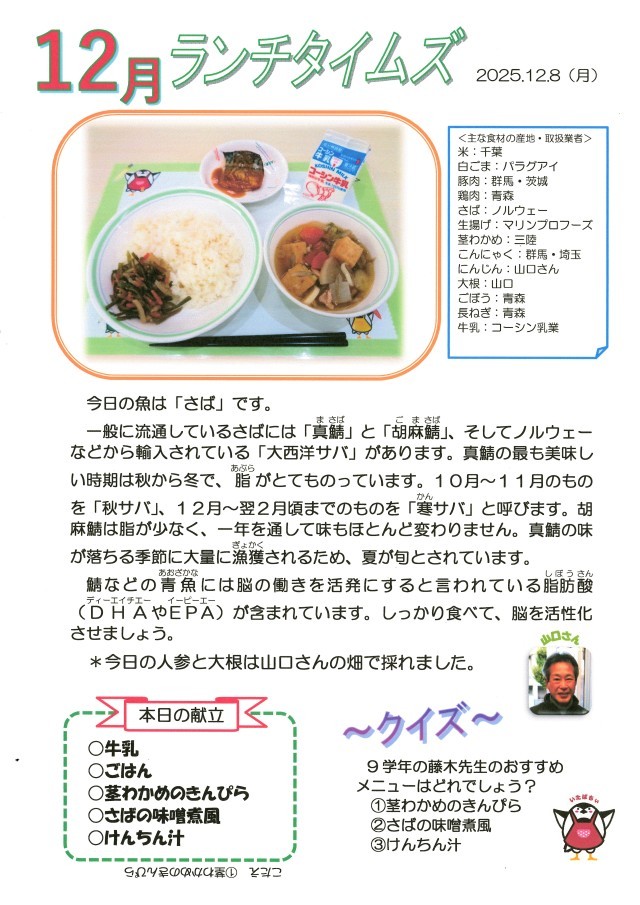 12月ランチタイムズ
2025.12.8（月）
＜主な食材の産地・取扱業者＞
米：千葉
白ごま：パラグアイ
豚肉：群馬・茨城
鶏肉：青森
さば：ノルウェー
生揚げ：マリンプロフーズ
茎わかめ：三陸
こんにゃく：群馬・埼玉
にんじん：山口さん
大根：山口
ごぼう：青森
長ねぎ：青森
牛乳：コーシン乳業
コーシン
牛乳
KOSHIN MILK
コーシン牛乳
今日の魚は「さば」です。
ま さば　ご ま さば
一般に流通しているさばには「真鯖」と「胡麻鯖」、そしてノルウェー
などから輸入されている「大西洋サバ」があります。真鯖の最も美味し
あぶら
い時期は秋から冬で、脂がとてものっています。１０月～１１月のもの
かん
を「秋サバ」、１２月～翌２月頃までのものを「寒サバ」と呼びます。胡
麻鯖は脂が少なく、一年を通して味もほとんど変わりません。真鯖の味
ぎょかく
が落ちる季節に大量に漁獲されるため、夏が旬とされています。
あおざかな　しぼうさん
鯖などの青魚には脳の働きを活発にすると言われている脂肪酸
ディーエイチエー　イーピーエー
（ＤＨＡやＥＰＡ）が含まれています。しっかり食べて、脳を活性化
させましょう。
＊今日の人参と大根は山口さんの畑で採れました。
山口さん
本日の献立
○牛乳
○ごはん
○茎わかめのきんぴら
○さばの味噌煮風
○けんちん汁
～クイズ～
９学年の藤木先生のおすすめ
メニューはどれでしょう？
①茎わかめのきんぴら
②さばの味噌煮風
③けんちん汁
いたばぁい
こたえ　①茎わかめのきんぴら